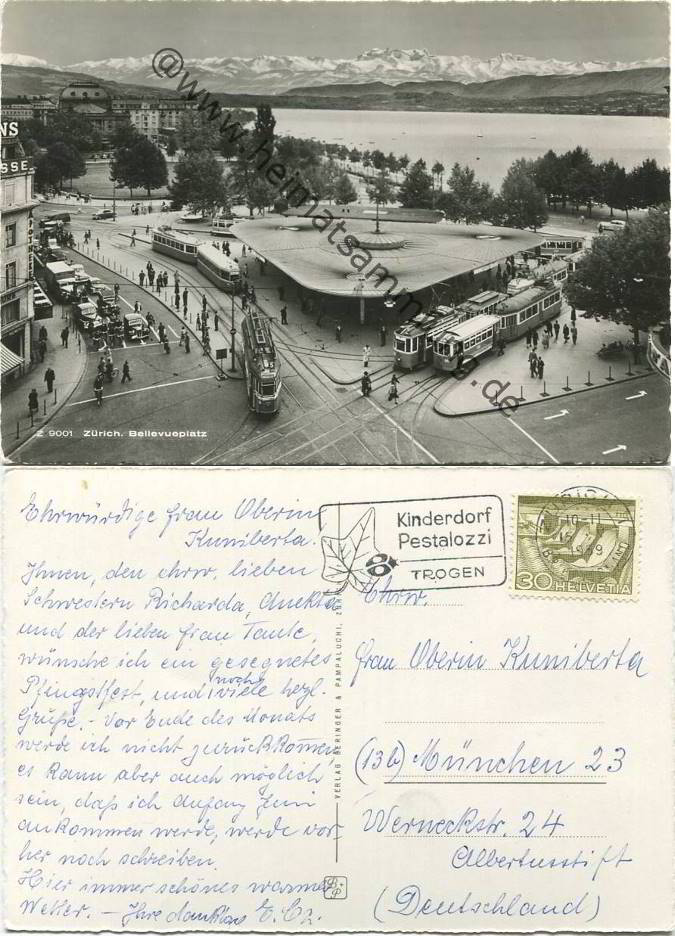 NS
SSE
@www.heimatsammlung.de
Z 9001 Zürich. Bellevueplatz
Ehrwürdige Frau Oberin
Kuniberta.
Ihnen, den ehrw. lieben
Schwestern Richarda,
und der lieben Frau Tante,
wünsche ich ein gesegnetes
Pfingstfest, und noch viele herzl.
Grüße. - Vor Ende des Monats
werde ich nicht zurückkommen,
es kann aber auch möglich
sein, daß ich Anfang Juni
ankommen werde, werde vor-
her noch schreiben.
Hier immer schönes warmes
Wetter. - Ihre dankbare
VERLAG BERINGER & PAMPALUCHI, ZÜRICH
B+P
Kinderdorf
Pestalozzi
TROGEN
30 HELVETIA
Ehrw.
Frau Oberin Kuniberta
(13b) München 23
Werneckstr. 24
Albertusstift
(Deutschland)